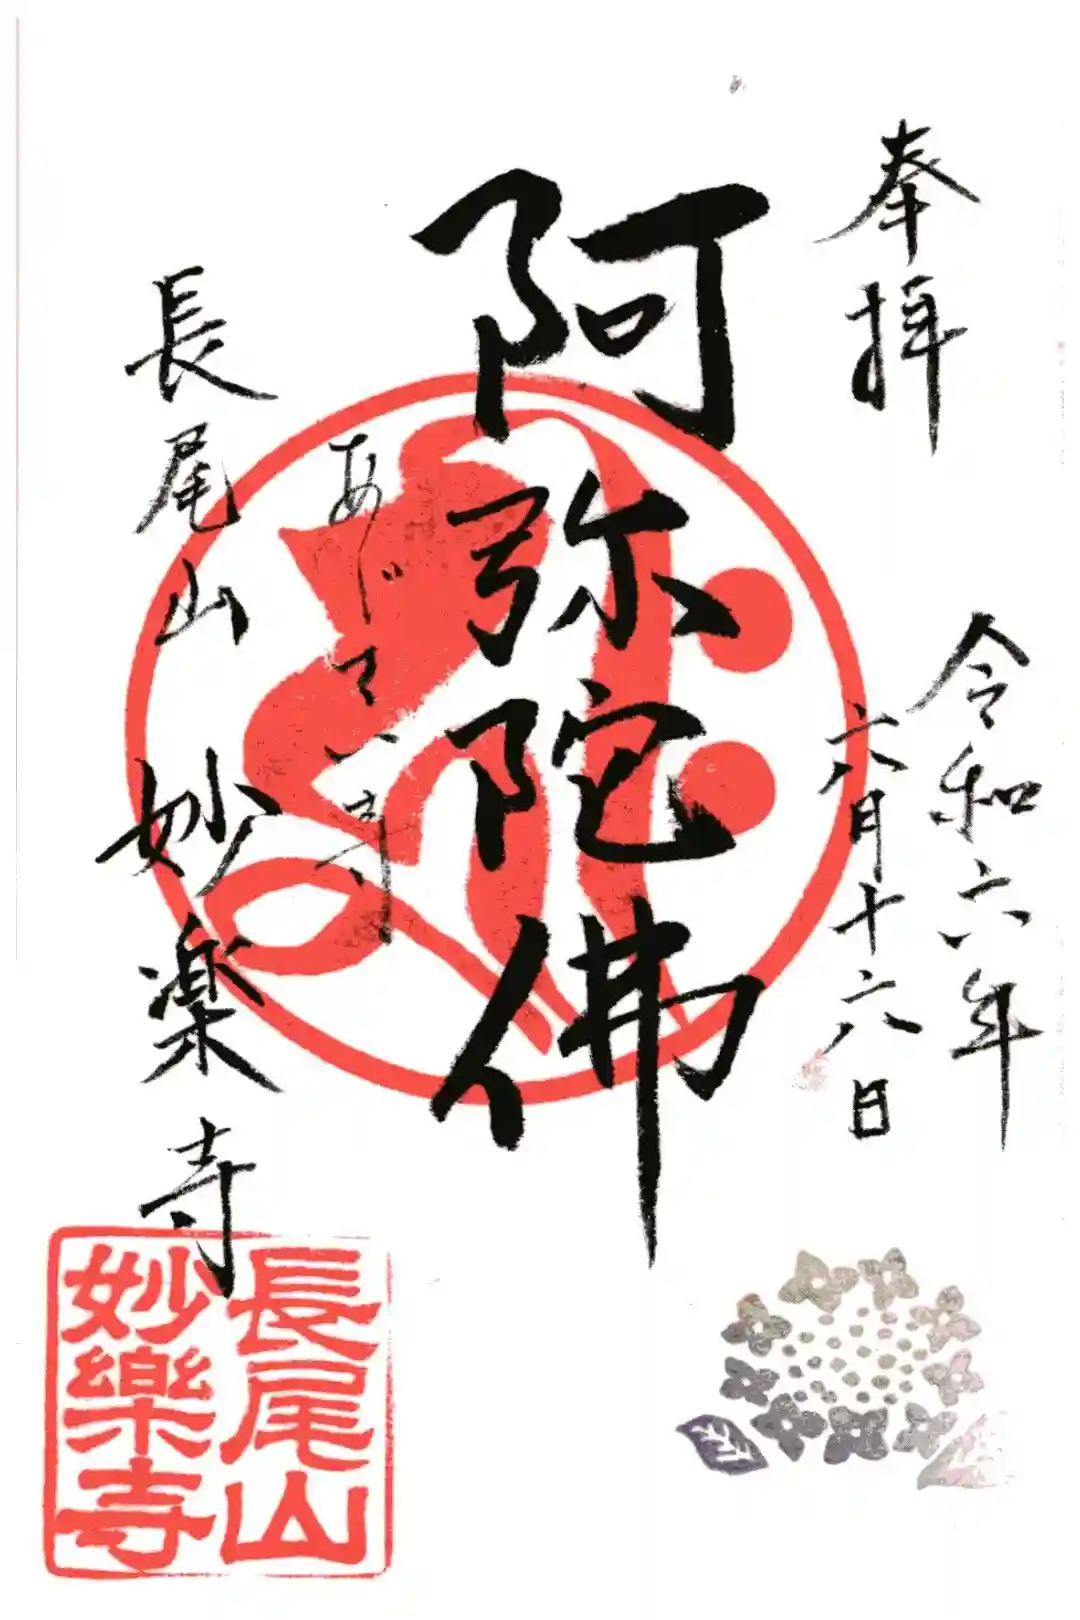 奉拝
令和六年
六月十六日
阿弥陀佛
あじさい寺
長尾山 妙楽寺
長尾山
妙樂寺